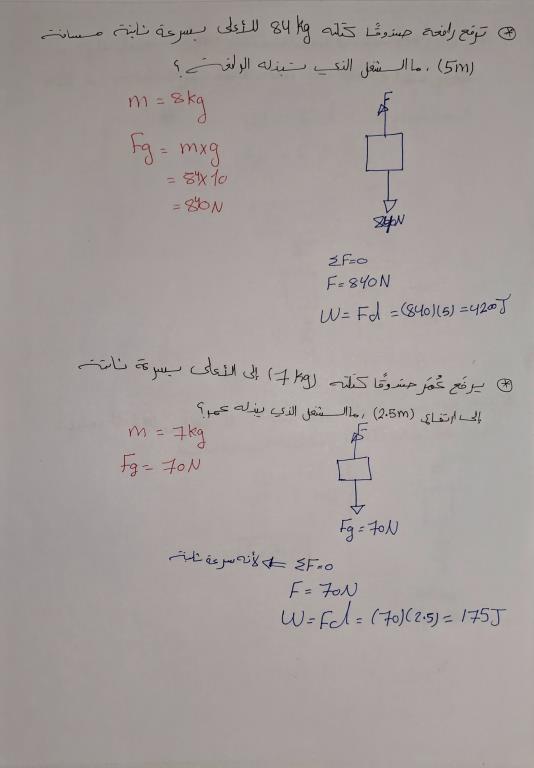 * ترفع رافعة صندوقًا كتلته 84 kg للأعلى بسرعة ثابتة مسافة
(5m) ، ما الشغل الذي تبذله الرافعة ؟
m = 8kg
F
Fg = m×g
= 84×10
= 840N
840N
ΣF=0
F = 840N
W = Fd = (840)(5) = 4200J
* يرفع عُمَر صندوقًا كتلته (7 kg) إلى الأعلى بسرعة ثابتة
إلى ارتفاع (2.5m) ، ما الشغل الذي يبذله عمر ؟
m = 7kg
F
Fg = 70N
Fg = 70N
ΣF=0 ⇐ لأنه سرعة ثابتة
F = 70N
W = Fd = (70)(2.5) = 175J